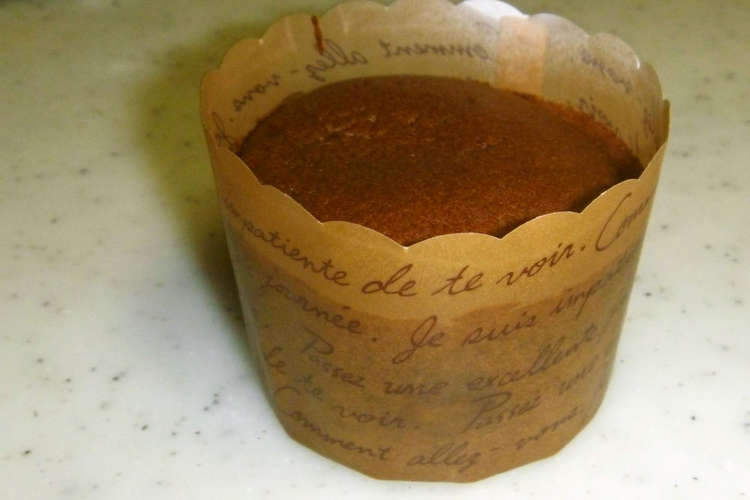 Comment allez-vous
impatiente de te voir. Comm
journée. Je suis impat
Passez une excellente
de te voir. Passez une
Comment allez-vous